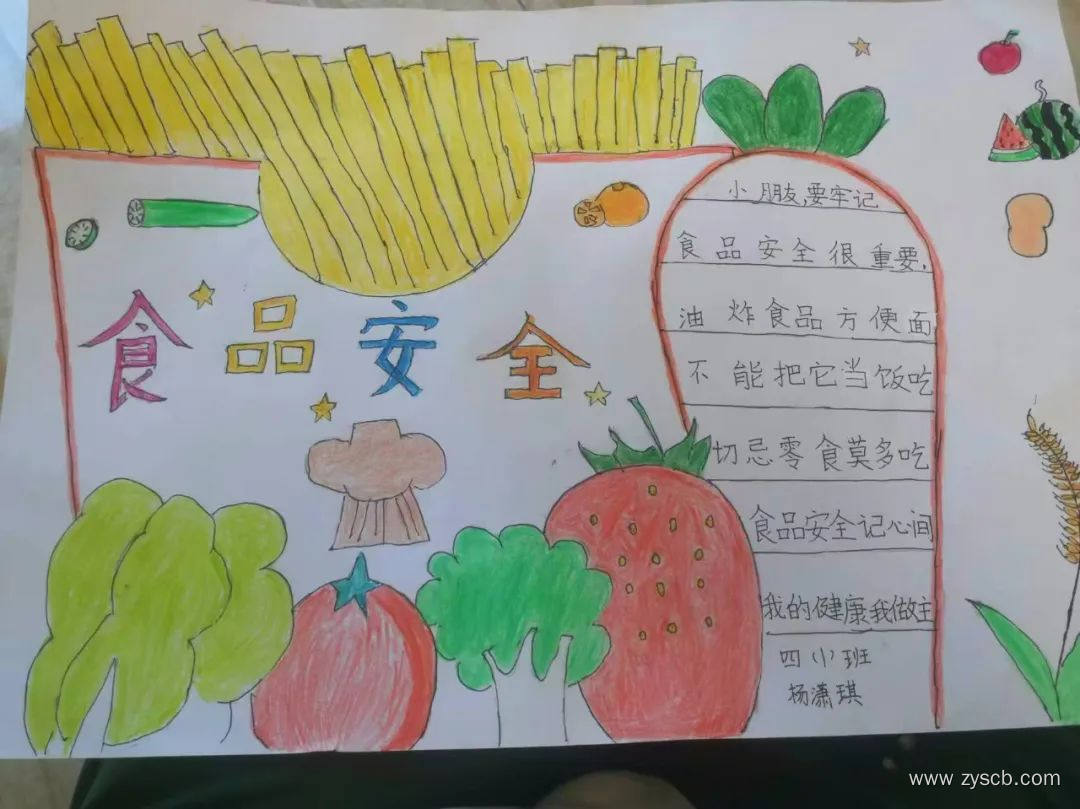 食品安全
小朋友,要牢记
食品安全很重要,
油炸食品方便面
不能把它当饭吃
切忌零食莫多吃
食品安全记心间
我的健康我做主
四(小)班
杨潇琪
www.zyscb.com